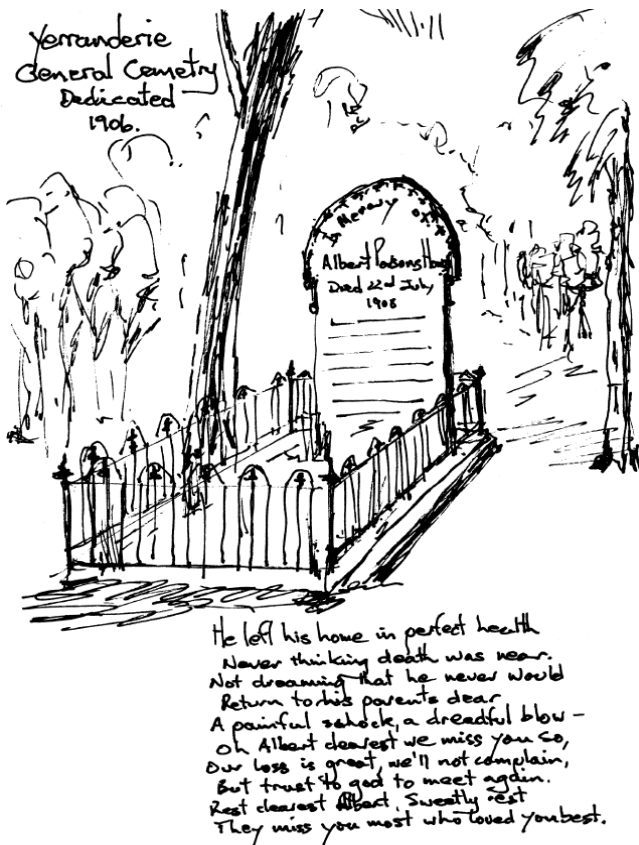 Yerranderie
General Cemetry
Dedicated
1906.
Memory of
Albert
Died 22nd July
1908
He left his home in perfect health
Never thinking death was near.
Not dreaming that he never would
Return to his parents dear
A painful sshock, a dreadful blow –
Oh Albert dearest we miss you so,
Our loss is great, we'll not complain,
But trust to god to meet again.
Rest dearest Albert, Sweetly rest
They miss you most who loved you best.